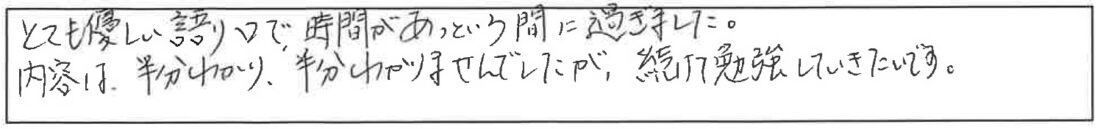 とても優しい語り口で、時間があっという間に過ぎました。
内容は、半分わかり、半分わかりませんでしたが、続けて勉強していきたいです。